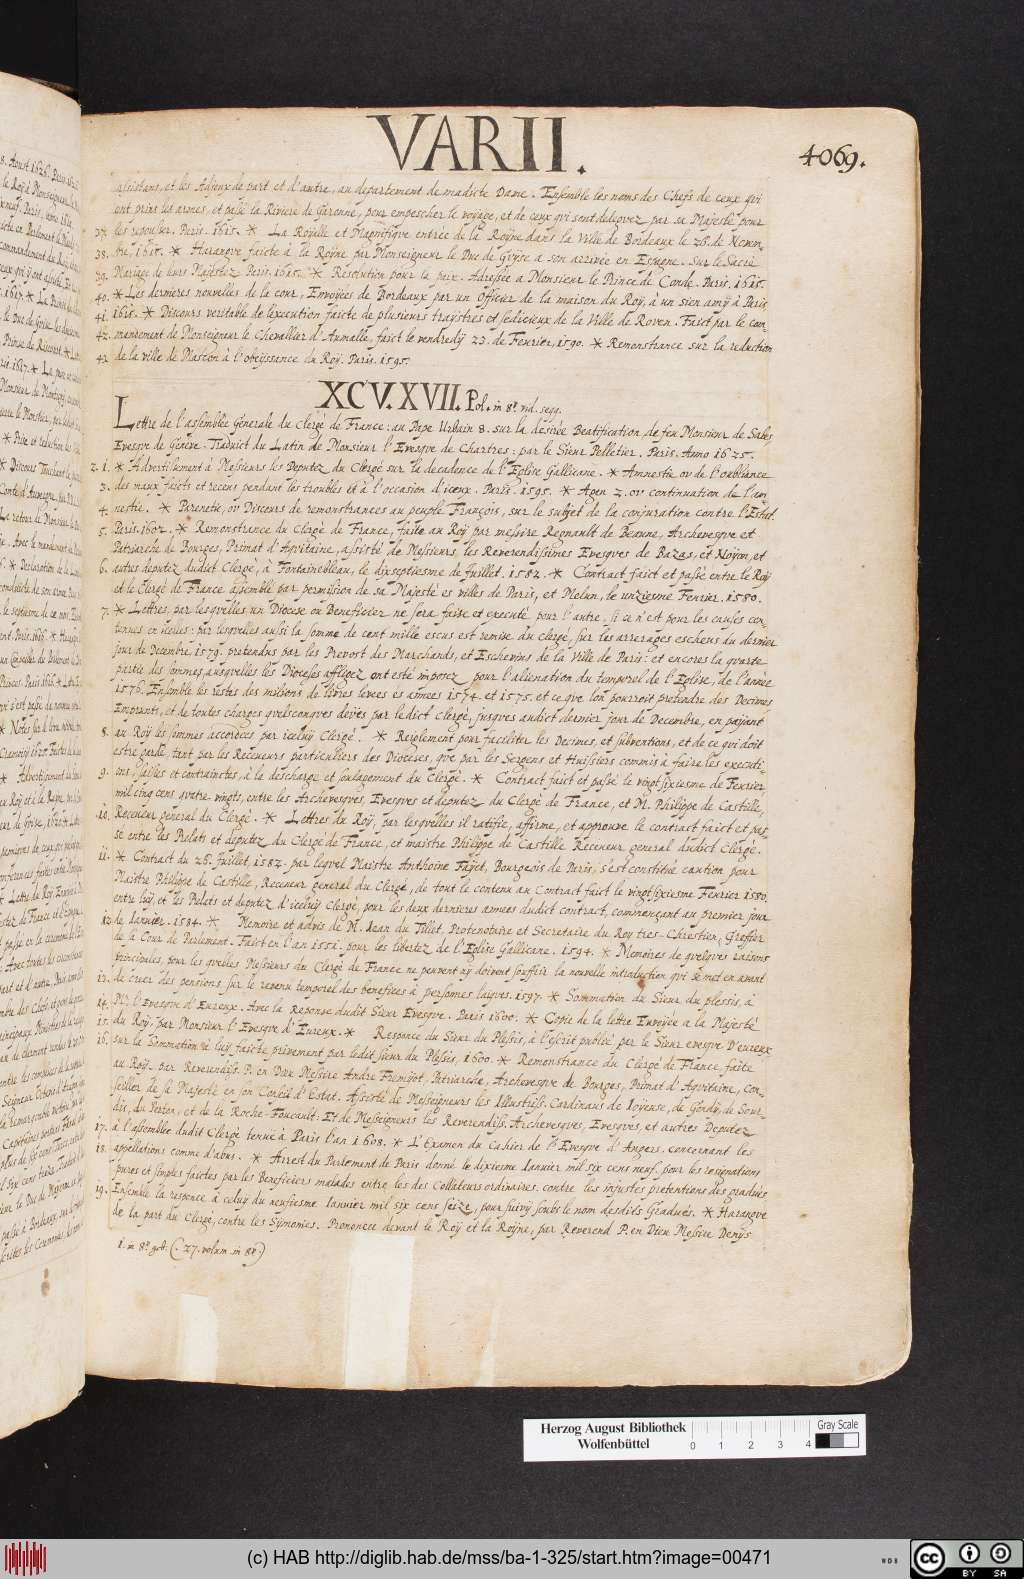 VARII.
4069.
assistans, et les Adjeux de part et d'autre, au departement de madicte Dame. Ensemble les noms des Chefs de ceux qui
ont prins les armes, et passé la Riviere de Garonne, pour empescher le voyage, et de ceux qui sont deleguez par sa Majesté pour
37. les repousser. Paris. 1615. * La Royalle et Magnifique entrée de la Royne dans la Ville de Bordeaux le 28. de Novem-
38. bre, 1615. * Harangue faicte à la Royne par Monseigneur le Duc de Guyse a son arrivée en Espagne. Sur le Sacré
39. Mariage de leurs Majestez. Paris. 1615. * Resolution pour la paix. Adressée a Monsieur le Prince de Condé. Paris. 1615.
40. * Les dernieres nouvelles de la cour, Envoyées de Bordeaux par un Officier de la maison du Roy, à un sien amy à Paris
41. 1615. * Discours veritable de l'execution faicte de plusieurs traystres et sedicieux de la Ville de Roven. Faict par le com-
42. mandement de Monseigneur le Chevallier d'Aumalle, faict le vendredy 23. de Fevrier, 1590. * Remonstrance sur la reduction
43. de la ville de Mascon à l'obeyssance du Roy. Paris. 1595.
XCV.XVII. Pol. in 8º. vid. seqq.
Lettre de l'assemblée Generale du Clergé de France: au Pape Urbain 8. sur la desirée Beatification de feu Monsieur de Sales
Evesque de Geneve. Traduict du Latin de Monsieur l'Evesque de Chartres: par le Sieur Pelletier. Paris. Anno 1625.
2. 1. * Advertissement à Messieurs les Deputez du Clergé sur la decadence de l'Eglise Gallicane. * Amnestie ou de l'oubliance
3. des maux faicts et receus pendant les troubles et à l'occasion d'iceux. Paris. 1595. * Agen 2. ou continuation de l'am-
4. nestie. * Parenetic, ou Discours de remonstrances au peuple François, sur le subjet de la conjuration contre l'Estat.
5. Paris. 1602. * Remonstrance du Clergé de France, faite au Roy par messire Regnault de Beaune, Archevesque et
Patriarche de Bourges, Primat d'Aquitaine, assisté de Messieurs les Reverendissimes Evesques de Bazas, et Noyon, et
6. autres deputez dudict Clergé, à Fontainebleau, le dixseptiesme de Juillet. 1582. * Contract faict et passé entre le Roy
et le Clergé de France assemblé par permission de sa Majesté es villes de Paris, et Melun, le unziesme Fevrier. 1580.
7. * Lettres, par lesquelles un Diocese ou Beneficier ne sera saisi et executé pour l'autre, si ce n'est pour les causes con-
tenues en icelles: par lesquelles aussi la somme de cent mille escus est remise au clergé, sur les arrerages escheus du dernier
jour de Decembre, 1579. pretendus par les Prevost des Marchands, et Eschevins de la Ville de Paris: et encores la quarte
partie des sommes ausquelles les Dioceses affligez ont esté imposez pour l'alienation du temporel de l'Eglise, de l'année
1576. Ensemble les restes des milions de livres levees es années 1574. et 1575. et ce que l'on pourroit pretendre des Decimes
Emprunts, et de toutes charges quelsconques deües par ledict Clergé, jusques audict dernier jour de Decembre, en payant
8. au Roy les sommes accordees par iceluy Clergé. * Reglement pour faciliter les Decimes, et subventions, et de ce qui doit
estre gardé, tant par les Receveurs particuliers des Dioceses, que par les Sergens et Huissiers commis à faire les executi-
9. ons, saisies et contrainctes, à la descharge et soulagement du Clergé. * Contract faict et passé le vingt sixiesme de Fevrier
mil cinq cens quatre vingts, entre les Archevesques, Evesques et deputez du Clergé de France, et M. Philippe de Castille,
10. Receveur general du Clergé. * Lettres du Roy, par lesquelles il ratifie, affirme, et approuve le contract faict et pas-
sé entre les Prelats et deputez du Clergé de France, et maistre Philippe de Castille Receveur general dudict Clergé.
11. * Contract du 26. Juillet, 1582. par lequel Maistre Anthoine Fayet, Bourgeois de Paris, s'est constitué caution pour
Maistre Philippe de Castille, Receveur general du Clergé, de tout le contenu au Contract faict le vingt sixiesme Fevrier 1580.
entre luy, et les Prelats et deputez d'iceluy Clergé, pour les deux dernieres années dudict contract, commençant au premier jour
12. de Janvier. 1584. * Memoire et advis de M. Jean du Tillet, Protenotaire et Secretaire du Roy tres-Chrestien, Greffier
de la Cour de Parlement. Faict en l'an 1551. pour les libertez de l'Eglise Gallicane. 1594. * Memoires de quelques raisons
principales, pour les quelles Messieurs du Clergé de France ne peuvent ny doivent souffrir la nouvelle introduction qui se met en avant
13. de creer des pensions sur le revenu temporel des benefices à personnes laiques. 1597. * Sommation du Sieur du plessis, à
14. Mr l'Evesque d'Evreux. Avec la Reponse dudit Sieur Evesque. Paris 1600. * Copie de la lettre Envoyée a la Majesté
15. du Roy, par Monsieur l'Evesque d'Evreux. * Responce du Sieur du Plessis, à l'escrit publié par le Sieur evesque D'evreux
16. sur la Sommation à luy faicte privement par ledit sieur du Plessis, 1600. * Remonstrance du Clergé de France faite
au Roy. par Reverendiss. P. en Dieu Messire Andre Fremyot, Patriarche, Archevesque de Bourges, Primat d'Aquitaine, Con-
seiller de sa Majesté en son Conseil d'Estat. Assisté de Messeigneurs les Illustriss. Cardinaux de Joyeuse, de Gondy, de Sour-
dis, du Perron, et de la Roche-Foucault: Et de Messeigneurs les Reverendiss. Archevesques, Evesques, et autres Deputez
17. à l'assemblee dudit Clergé tenue à Paris l'an 1608. * L'Examen du Cahier de l'Evesque d'Angers. concernant les
18. appellations comme d'abus. * Arrest du Parlement de Paris donné le dixiesme Ianvier mil six cens neuf. pour les resignations
pures et simples faictes par les Beneficiers malades entre les des Collateurs ordinaires. contre les injustes pretentions des gradués
19. Ensemble la responce à celuy du neufiesme Ianvier mil six cens seize, pour suivy soubs le nom desdits Gradués. * Harangue
de la part du Clergé, contre les Symonies. Prononcee devant le Roy et la Royne, par Reverend P. en Dieu Messire Denys
1. in 8º. got: (. 27. volum. in 8º.)
Herzog August Bibliothek
Wolfenbüttel
0 1 2 3 4
Gray Scale
(c) HAB http://diglib.hab.de/mss/ba-1-325/start.htm?image=00471
WDB
cc BY SA